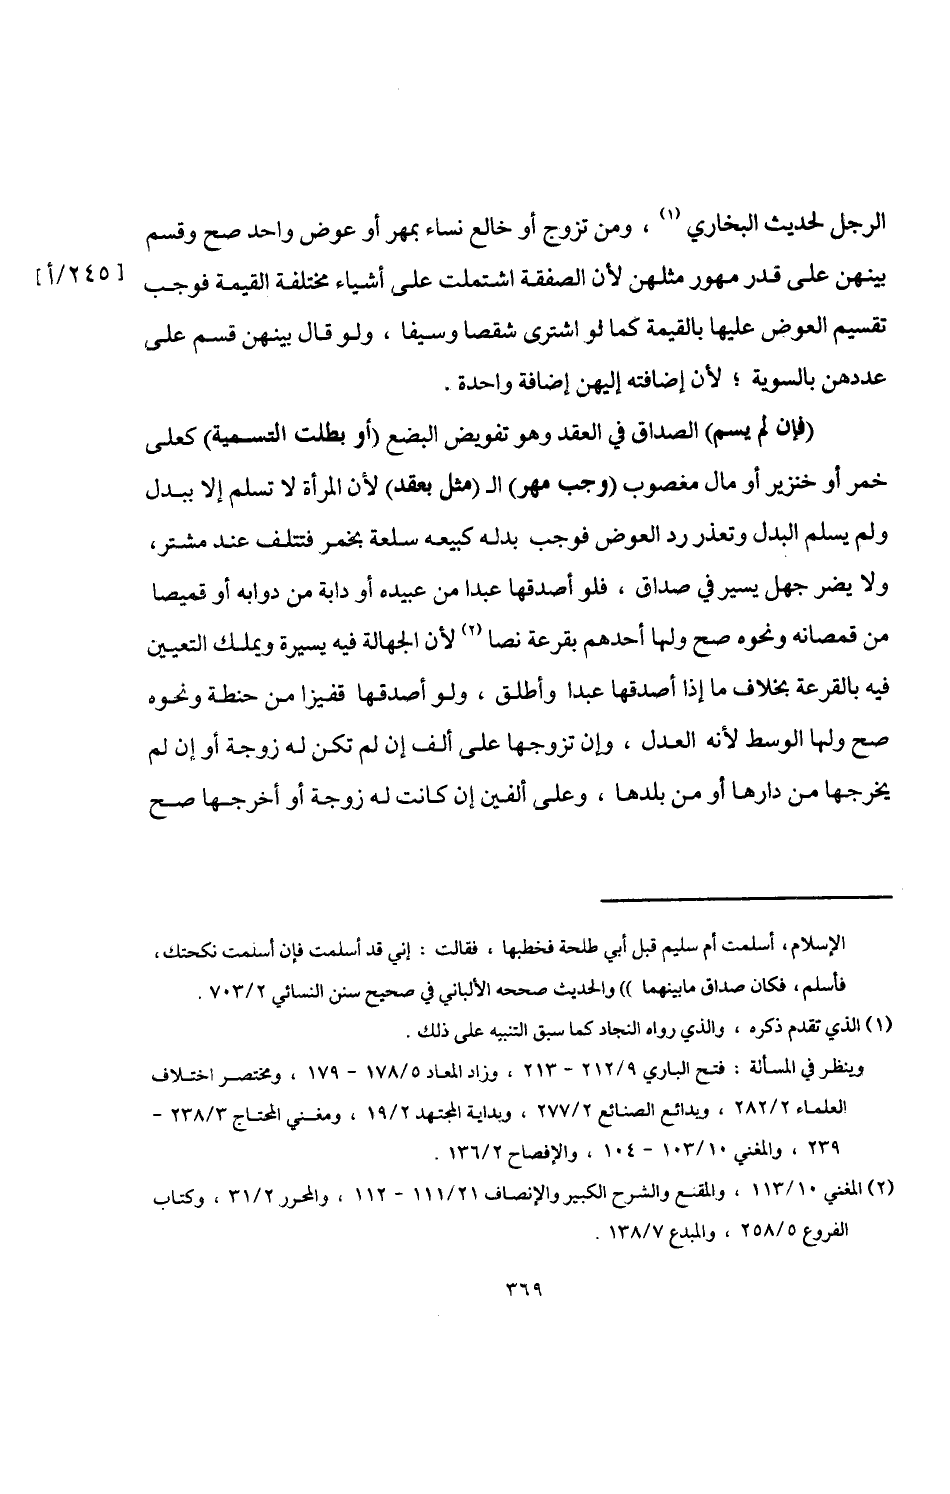 الرجل لحديث البخاري (١) ، ومن تزوج أو خالع نساء بمهر أو عوض واحد صح وقسم
بينهن على قدر مهور مثلهن لأن الصفقة اشتملت على أشياء مختلفة القيمة فوجب [٢٤٥/أ]
تقسيم العوض عليها بالقيمة كما لو اشترى شقصا وسيفا ، ولو قال بينهن قسم على
عددهن بالسوية ؛ لأن إضافته إليهن إضافة واحدة .
(فإن لم يسم) الصداق في العقد وهو تفويض البضع (أو بطلت التسمية) كعلى
خمر أو خنزير أو مال مغصوب (وجب مهر) الـ (مثل بعقد) لأن المرأة لا تسلم إلا ببدل
ولم يسلم البدل وتعذر رد العوض فوجب بدله كبيعه سلعة بخمر فتتلف عند مشتر،
ولا يضر جهل يسير في صداق ، فلو أصدقها عبدا من عبيده أو دابة من دوابه أو قميصا
من قمصانه ونحوه صح ولها أحدهم بقرعة نصا (٢) لأن الجهالة فيه يسيرة ويملك التعيين
فيه بالقرعة بخلاف ما إذا أصدقها عبدا وأطلق ، ولو أصدقها قفيزا من حنطة ونحوه
صح ولها الوسط لأنه العدل ، وإن تزوجها على ألف إن لم تكن له زوجة أو إن لم
يخرجها من دارها أو من بلدها ، وعلى ألفين إن كانت له زوجة أو أخرجها صح
الإسلام، أسلمت أم سليم قبل أبي طلحة فخطبها ، فقالت : إني قد أسلمت فإن أسلمت نكحتك،
فأسلم، فكان صداق مابينهما )) والحديث صححه الألباني في صحيح سنن النسائي ٧٠٣/٢ .
(١) الذي تقدم ذكره ، والذي رواه النجاد كما سبق التنبيه على ذلك .
وينظر في المسألة : فتح الباري ٢١٢/٩ – ٢١٣ ، وزاد المعاد ١٧٨/٥ – ١٧٩ ، ومختصر اختلاف
العلماء ٢٨٢/٢ ، وبدائع الصنائع ٢٧٧/٢ ، وبداية المجتهد ١٩/٢ ، ومغني المحتاج ٢٣٨/٣ –
٢٣٩ ، والمغني ١٠٣/١٠ – ١٠٤ ، والإفصاح ١٣٦/٢ .
(٢) المغني ١١٣/١٠ ، والمقنع والشرح الكبير والإنصاف ١١١/٢١ – ١١٢ ، والمحرر ٣١/٢ ، وكتاب
الفروع ٢٥٨/٥ ، والمبدع ١٣٨/٧ .
٣٦٩